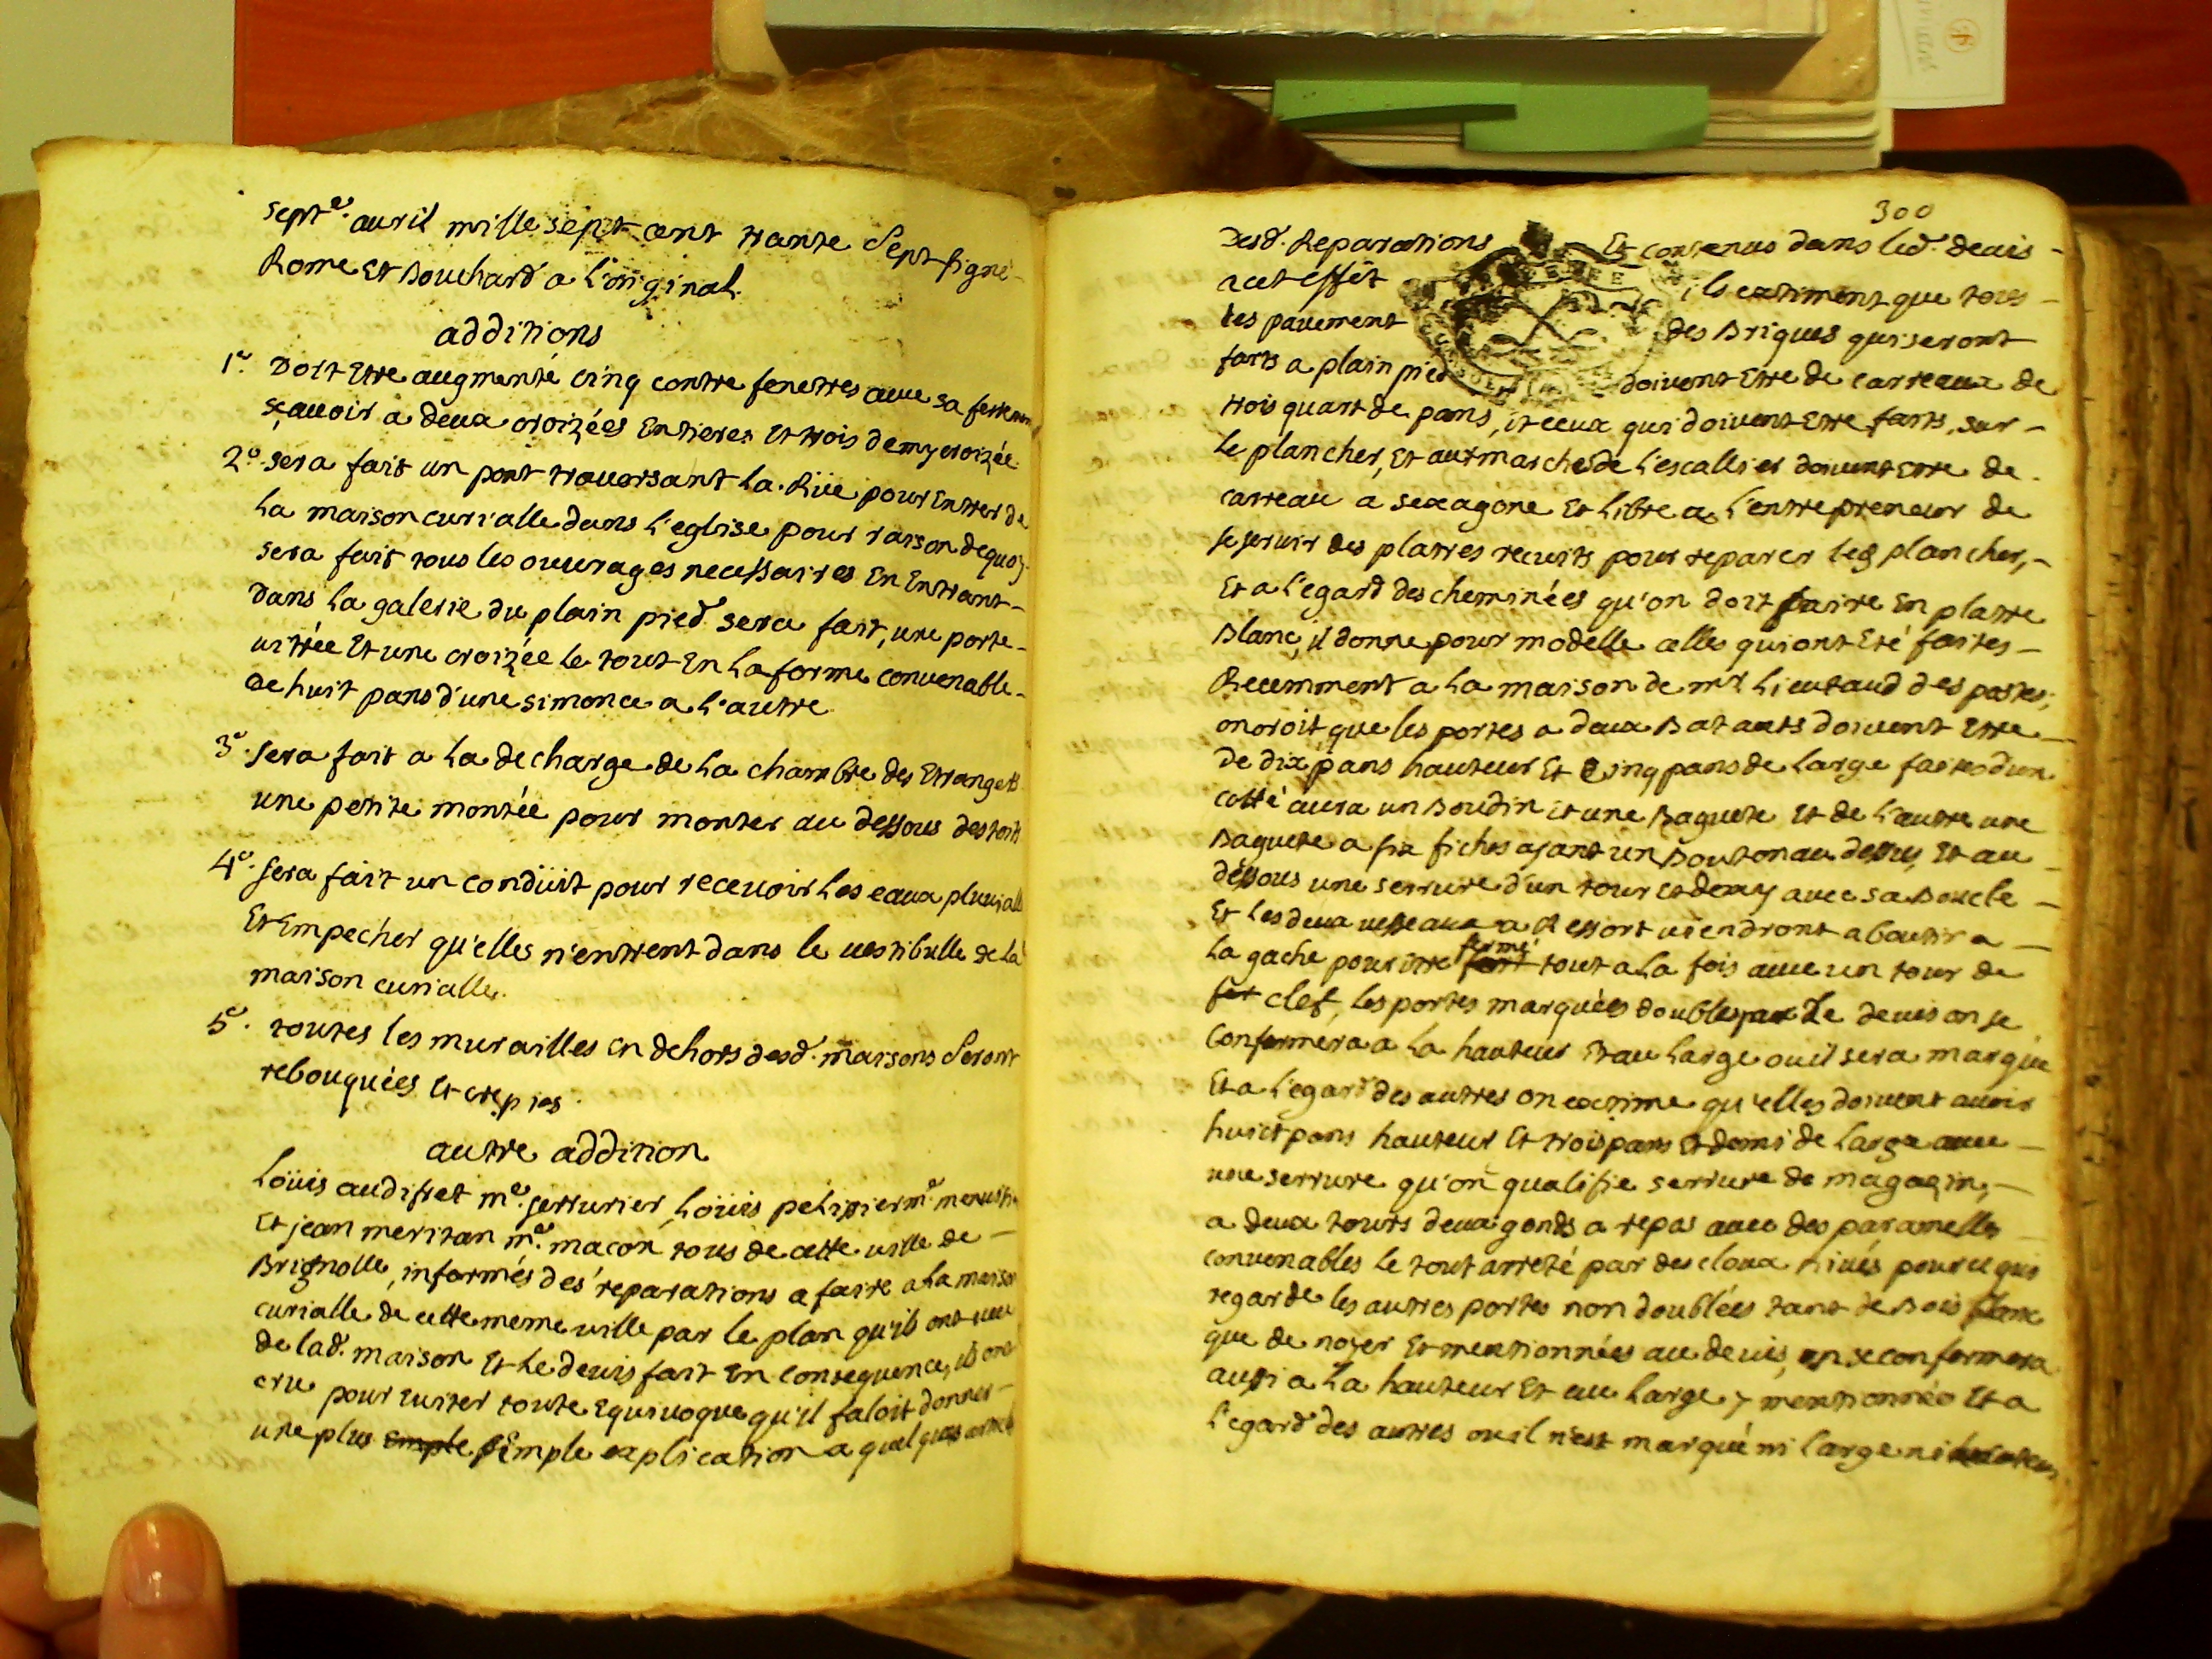 septe. auril mille sept cent trante sept signé
Rome Et Bouchard a l'original.
additions
1e. Doit Etre augmenté cinq contre fenetres auec sa
sçauoir a deux croizées Entieres Et trois demy croizée
2e. sera fait un pont trauersant la Rüe pour Entrer de
la maison curialle dans l'eglise pour raison dequoy
sera fait tous les ouurages necessaires En Entrant
Dans la galerie du plain pied sera fait, une porte
uitrée Et une croizée le tout En la forme conuenable
De huit pans d'une simonce a l'autre
3e. sera fait a la decharge de la chambre des Etrangers
une petite montée pour monter au dessous des toits
4e. sera fait un condüit pour receuoir les eaux pluuialles
Et Empecher qu'elles n'entrent dans le uestibulle de la
maison curialle.
5e. toutes les murailles en dehors desd. maisons seront
rebouquées Et crepies.
autre addition
Loüis audifret me. serrurier, Loüis pelissier me.
Et jean meritan me. macon tous de cette uille de
Brignolle, informés des reparations a faire a la maison
curialle de cette meme uille par le plan qu'ils ont
de lad. maison Et le deuis fait En consequence, ils ont
cru pour Euiter toute Equiuoque qu'il faloit donner
une plus simple explication a quelques
300
Desd. Reparations Et contenus dans led. deuis
a cet effêt ils extiment que tous
les pauement des Briques qui seront
faits a plain pied doiuent Etre de carreaux de
trois quart de pans, et ceux qui doiuent Etre faits, sur
le plancher, Et aux marches de l'escallier doiuent Etre de
carreau a sexagone Et libre a l'entrepreneur de
se seruir des platres recuits pour reparer les plancher,
Et a l'egard des cheminées qu'on doit faire En platre
Blanc, il donne pour modelle celles qui ont Eté faites
Recemment a la maison de mr. Lieutaud des postes,
on croit que les portes a deux Batants doiuent Etre
De dix pans hauteur Et Cinq pans de large faites d'un
costé aura un Boudin et une Baguete Et de l'autre une
Baguete a six fiches ajant un Bouton au dessus, Et au
dessous une serrure d'un tour et demy auec sa Boucle
Et les deux a Ressort uiendront aboutir a
la gache pour etre fermé tout a la fois auec un tour de
clef, les portes marquées doubles par le deuis on se
Conformera a la hauteur Et au large ou il sera marqué
Et a l'egard des autres on extime qu'elles doiuent auoir
huict pans hauteur Et trois pans Et demi de large auec
une serrure qu'on qualifie serrure de magazin,
a deux tours deux gonds a repas auec des paramelles
conuenables le tout arreté par des cloux riués pour ce qui
regarde les autres portes non doublées tant de Bois blanc
que de noyer Et mentionnées au deuis, on se conformera
aussi a la hauteur Et au large y mentionnés Et a
l'egard des autres ou il n'est marqué ni large ni hauteur